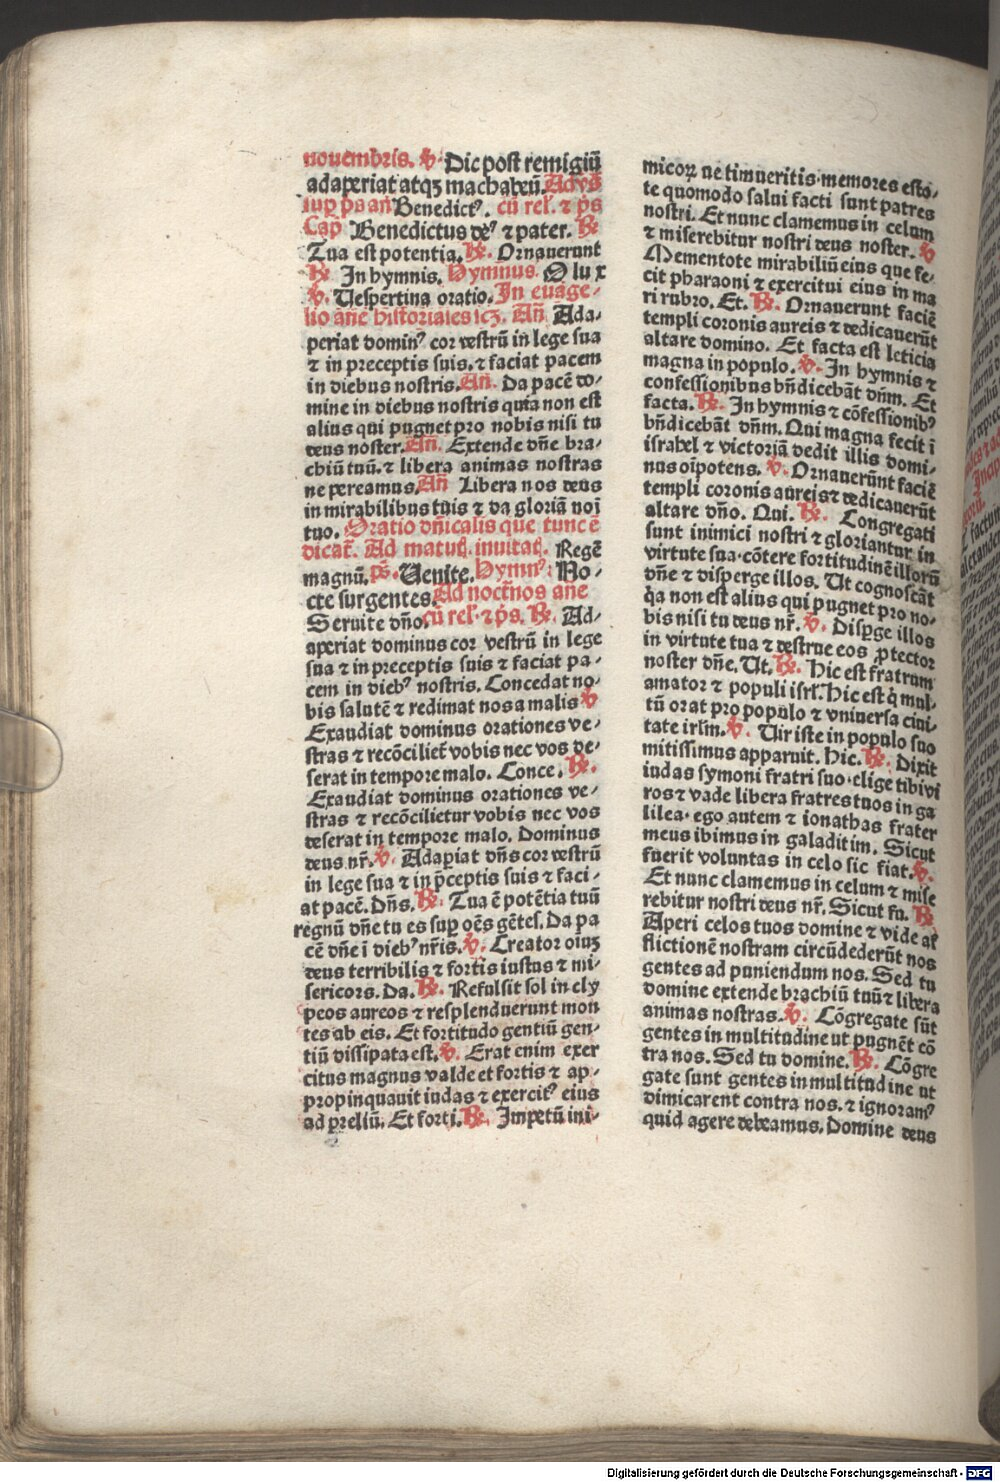 nouembris. ℣. Dic post remigiū
adaperiat atqꝫ machabeū. Ad vs̄
sup p̄s an̄ Benedictꝰ. cū rel. ⁊ p̄s
Cap̄ Benedictus deꝰ ⁊ pater. ℟
Tua est potentia. ℟. Ornauerunt
℟. In hymnis. Hymnus. O lux
℣. Vespertina oratio. In euāge-
lio an̄e historiales scꝫ. An̄. Ada-
periat dominꝰ cor vestrū in lege sua
⁊ in preceptis suis. ⁊ faciat pacem
in diebus nostris. An̄. Da pacē do-
mine in diebus nostris quia non est
alius qui pugnet pro nobis nisi tu
deus noster. An̄. Extende dn̄e bra-
chiū tuū. ⁊ libera animas nostras
ne pereamus. An̄ Libera nos deus
in mirabilibus tuis ⁊ da gloriā noī
tuo. Oratio dn̄icalis que tunc ē
dicāt. Ad matut̄. inuitat̄. Regē
magnū. ps̄. Uenite. Hymnꝰ. No-
cte surgentes. Ad noct̄nos an̄e
Seruite dn̄o. cū rel. ⁊ p̄s. ℟. Ad-
aperiat dominus cor vestrū in lege
sua ⁊ in preceptis suis ⁊ faciat pa-
cem in diebꝰ nostris. Concedat no-
bis salutē ⁊ redimat nos a malis ℣
Exaudiat dominus orationes ve-
stras ⁊ recōciliet̄ vobis nec vos de-
serat in tempore malo. Conce. ℟.
Exaudiat dominus orationes ve-
stras ⁊ recōcilietur vobis nec vos
deserat in tempore malo. Dominus
deus nr̄. ℣. Adap̄iat dn̄s cor vestrū
in lege sua ⁊ in p̄ceptis suis ⁊ faci-
at pacē. Dn̄s. ℟. Tua ē potētia tuū
regnū dn̄e tu es sup̄ oēs gētes. Da pa
cē dn̄e ī diebꝰ nr̄is. ℣. Creator oiuꝫ
deus terribilis ⁊ fortis iustus ⁊ mi-
sericors. Da. ℟. Refulsit sol in cly
peos aureos ⁊ resplenduerunt mon
tes ab eis. Et fortitudo gentiū gen-
tiū dissipata est. ℣. Erat enim exer
citus magnus valde et fortis ⁊ ap-
propinquauit iudas ⁊ exercitꝰ eius
ad preliū. Et forti. ℟. Impetū ini-
micoꝝ ne timueritis. memores esto-
te quomodo salui facti sunt patres
nostri. Et nunc clamemus in celum
⁊ miserebitur nostri deus noster. ℣
Mementote mirabiliū eius que fe-
cit pharaoni ⁊ exercitui eius in ma
ri rubro. Et. ℟. Ornauerunt faciē
templi coronis aureis ⁊ dedicauerūt
altare domino. Et facta est leticia
magna in populo. ℣. In hymnis ⁊
confessionibus bn̄dicebāt dn̄m. Et
facta. ℟. In hymnis ⁊ cōfessionibꝰ
bn̄dicebāt dn̄m. Qui magna fecit ī
israhel ⁊ victoriā dedit illis domi-
nus oīpotens. ℣. Ornauerūnt faciē
templi coronis aureis ⁊ dedicauerūt
altare dn̄o. Qui. ℟. Congregati
sunt inimici nostri ⁊ gloriantur in
virtute sua. cōtere fortitudinē illorū
dn̄e ⁊ disperge illos. Ut cognoscāt
q̄a non est alius qui pugnet pro no-
bis nisi tu deus nr̄. ℣. Disp̄ge illos
in virtute tua ⁊ destrue eos ꝓtector
noster dn̄e. Ut. ℟. Hic est fratrum
amator ⁊ populi isrl̄. Hic est q̄ mul-
tū orat pro populo ⁊ vniuersa ciui-
tate irlm̄. ℣. Uir iste in populo suo
mitissimus apparuit. Hic. ℟. Dixit
iudas symoni fratri suo. elige tibi vi
ros ⁊ vade libera fratres tuos in ga
lilea. ego autem ⁊ ionathas frater
meus ibimus in galaditim. Sicut
fuerit voluntas in celo sic fiat. ℣.
Et nunc clamemus in celum ⁊ mise
rebitur nostri deus nr̄. Sicut fu. ℟
Aperi celos tuos domine ⁊ vide af
flictionē nostram circūdederūt nos
gentes ad puniendum nos. Sed tu
domine extende brachiū tuū ⁊ libera
animas nostras. ℣. Cōgregate sūt
gentes in multitudine ut pugnēt cō
tra nos. Sed tu domine. ℟. Cōgre
gate sunt gentes in multitudine ut
dimicarent contra nos. ⁊ ignoramꝰ
quid agere debeamus. Domine deus
Digitalisierung gefördert durch die Deutsche Forschungsgemeinschaft - DFG